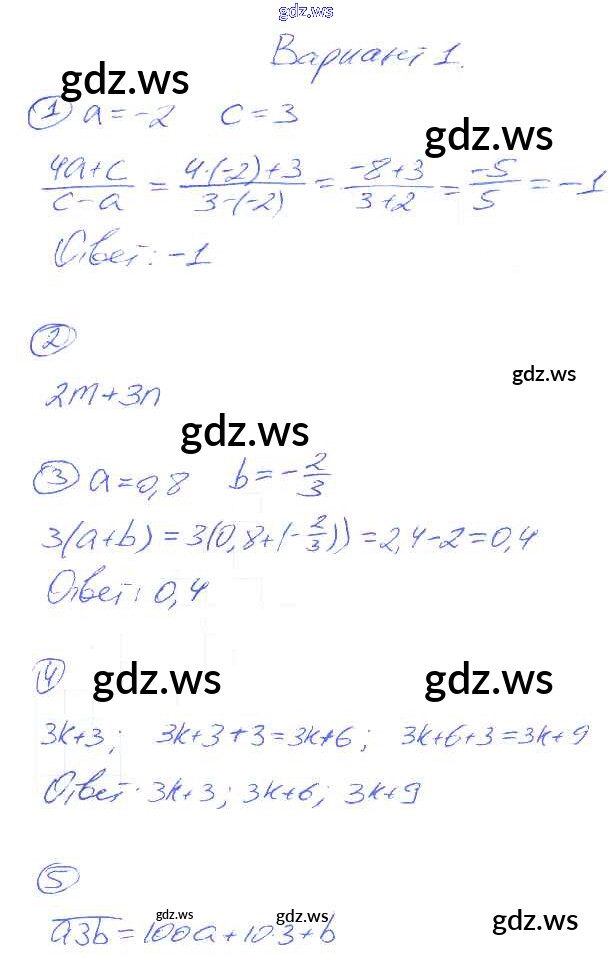 gdz.ws
Вариант 1.
gdz.ws
① a = -2 c = 3
gdz.ws
(4a+c)/(c-a) = (4·(-2)+3)/(3-(-2)) = (-8+3)/(3+2) = (-5)/5 = -1
Ответ: -1
②
gdz.ws
2m+3n
gdz.ws
③ a=0,8 b=-2/3
3(a+b) = 3(0,8+(-2/3)) = 2,4-2=0,4
Ответ: 0,4
④
gdz.ws gdz.ws
3k+3; 3k+3+3=3k+6; 3k+6+3=3k+9
Ответ: 3k+3; 3k+6; 3k+9
⑤
gdz.ws gdz.ws gdz.ws
a3b = 100a+10·3+b